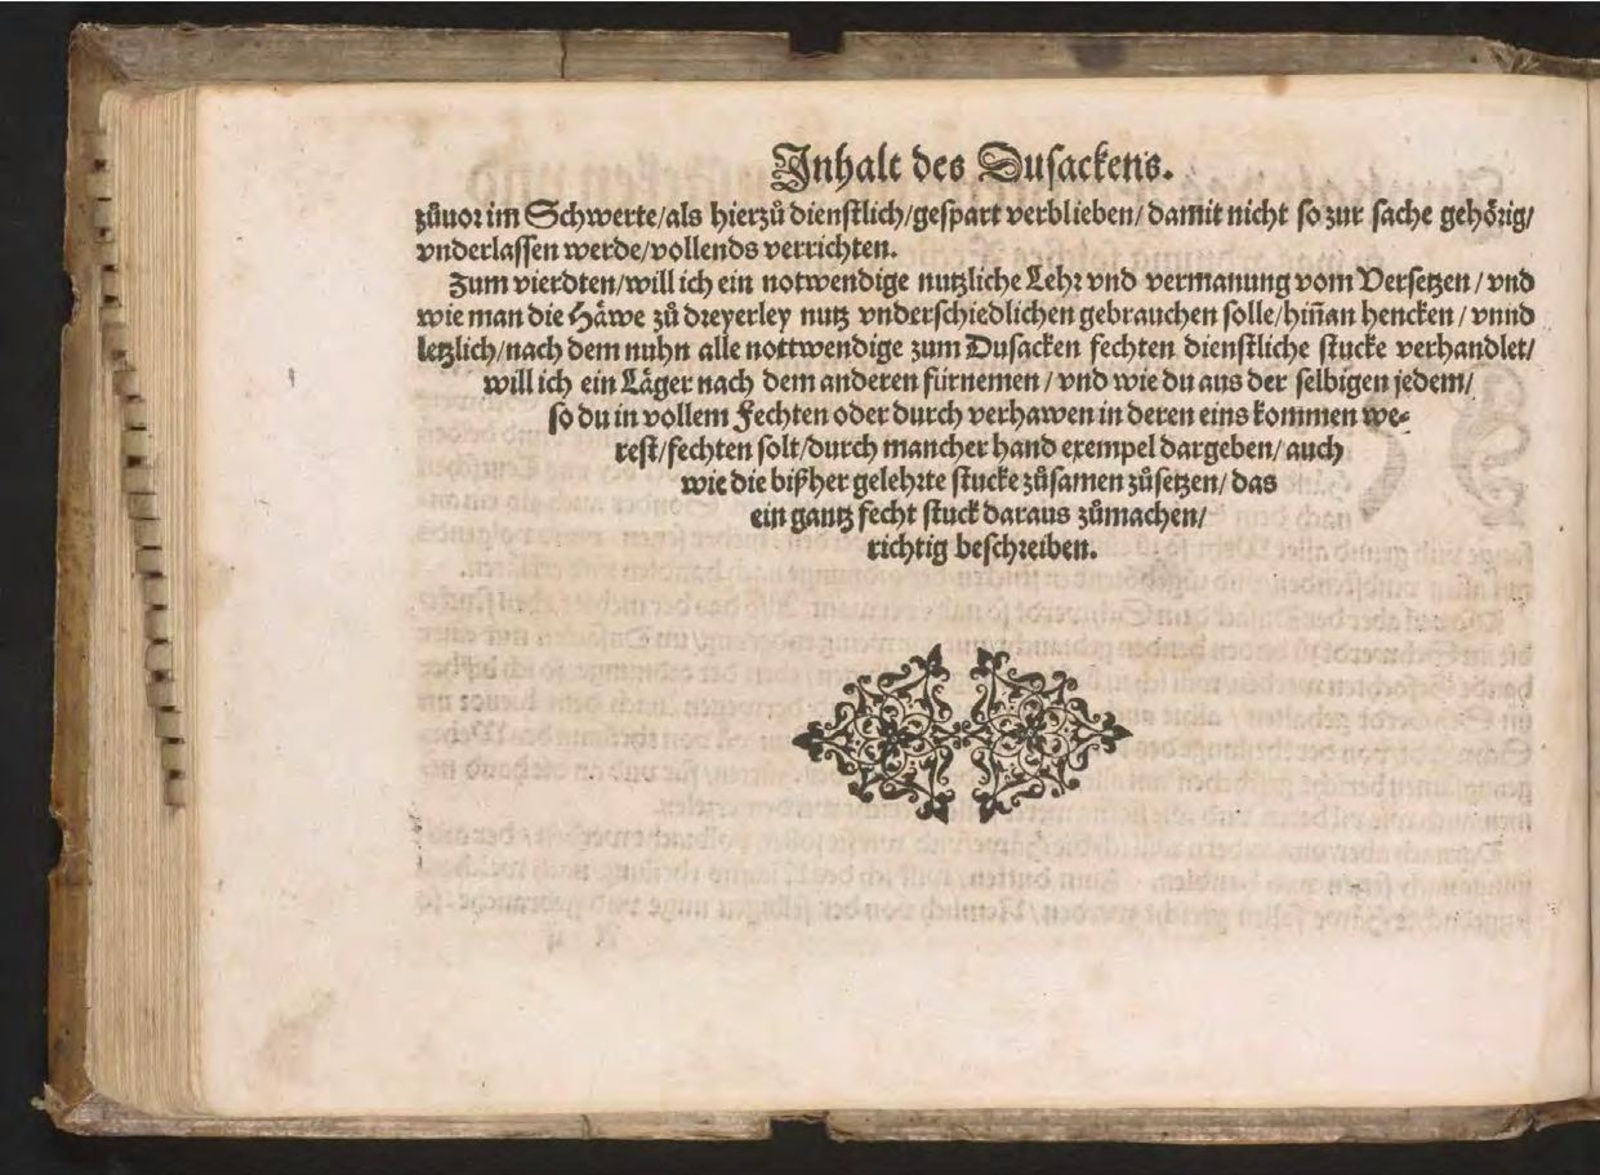 Inhalt des Dusackens.
zůuor im Schwerte/als hierzů dienstlich/gespart verblieben/ damit nicht so zur sache gehörig/
vnderlassen werde/vollends verrichten.
Zum vierdten/will ich ein notwendige nutzliche Lehr vnd vermanung vom Versetzen / vnd
wie man die Häwe zů dreyerley nutz vnderschiedlichen gebrauchen solle/hiñan hencken / vnnd
letzlich/nach dem nuhn alle nottwendige zum Dusacken fechten dienstliche stucke verhandlet/
will ich ein Läger nach dem anderen fürnemen / vnd wie du aus der selbigen jedem/
so du in vollem Fechten oder durch verhawen in deren eins kommen we-
rest/fechten solt/durch mancher hand exempel dargeben/ auch
wie die bißher gelehrte stucke zůsamen zůsetzen/ das
ein gantz fecht stuck daraus zůmachen/
richtig beschreiben.